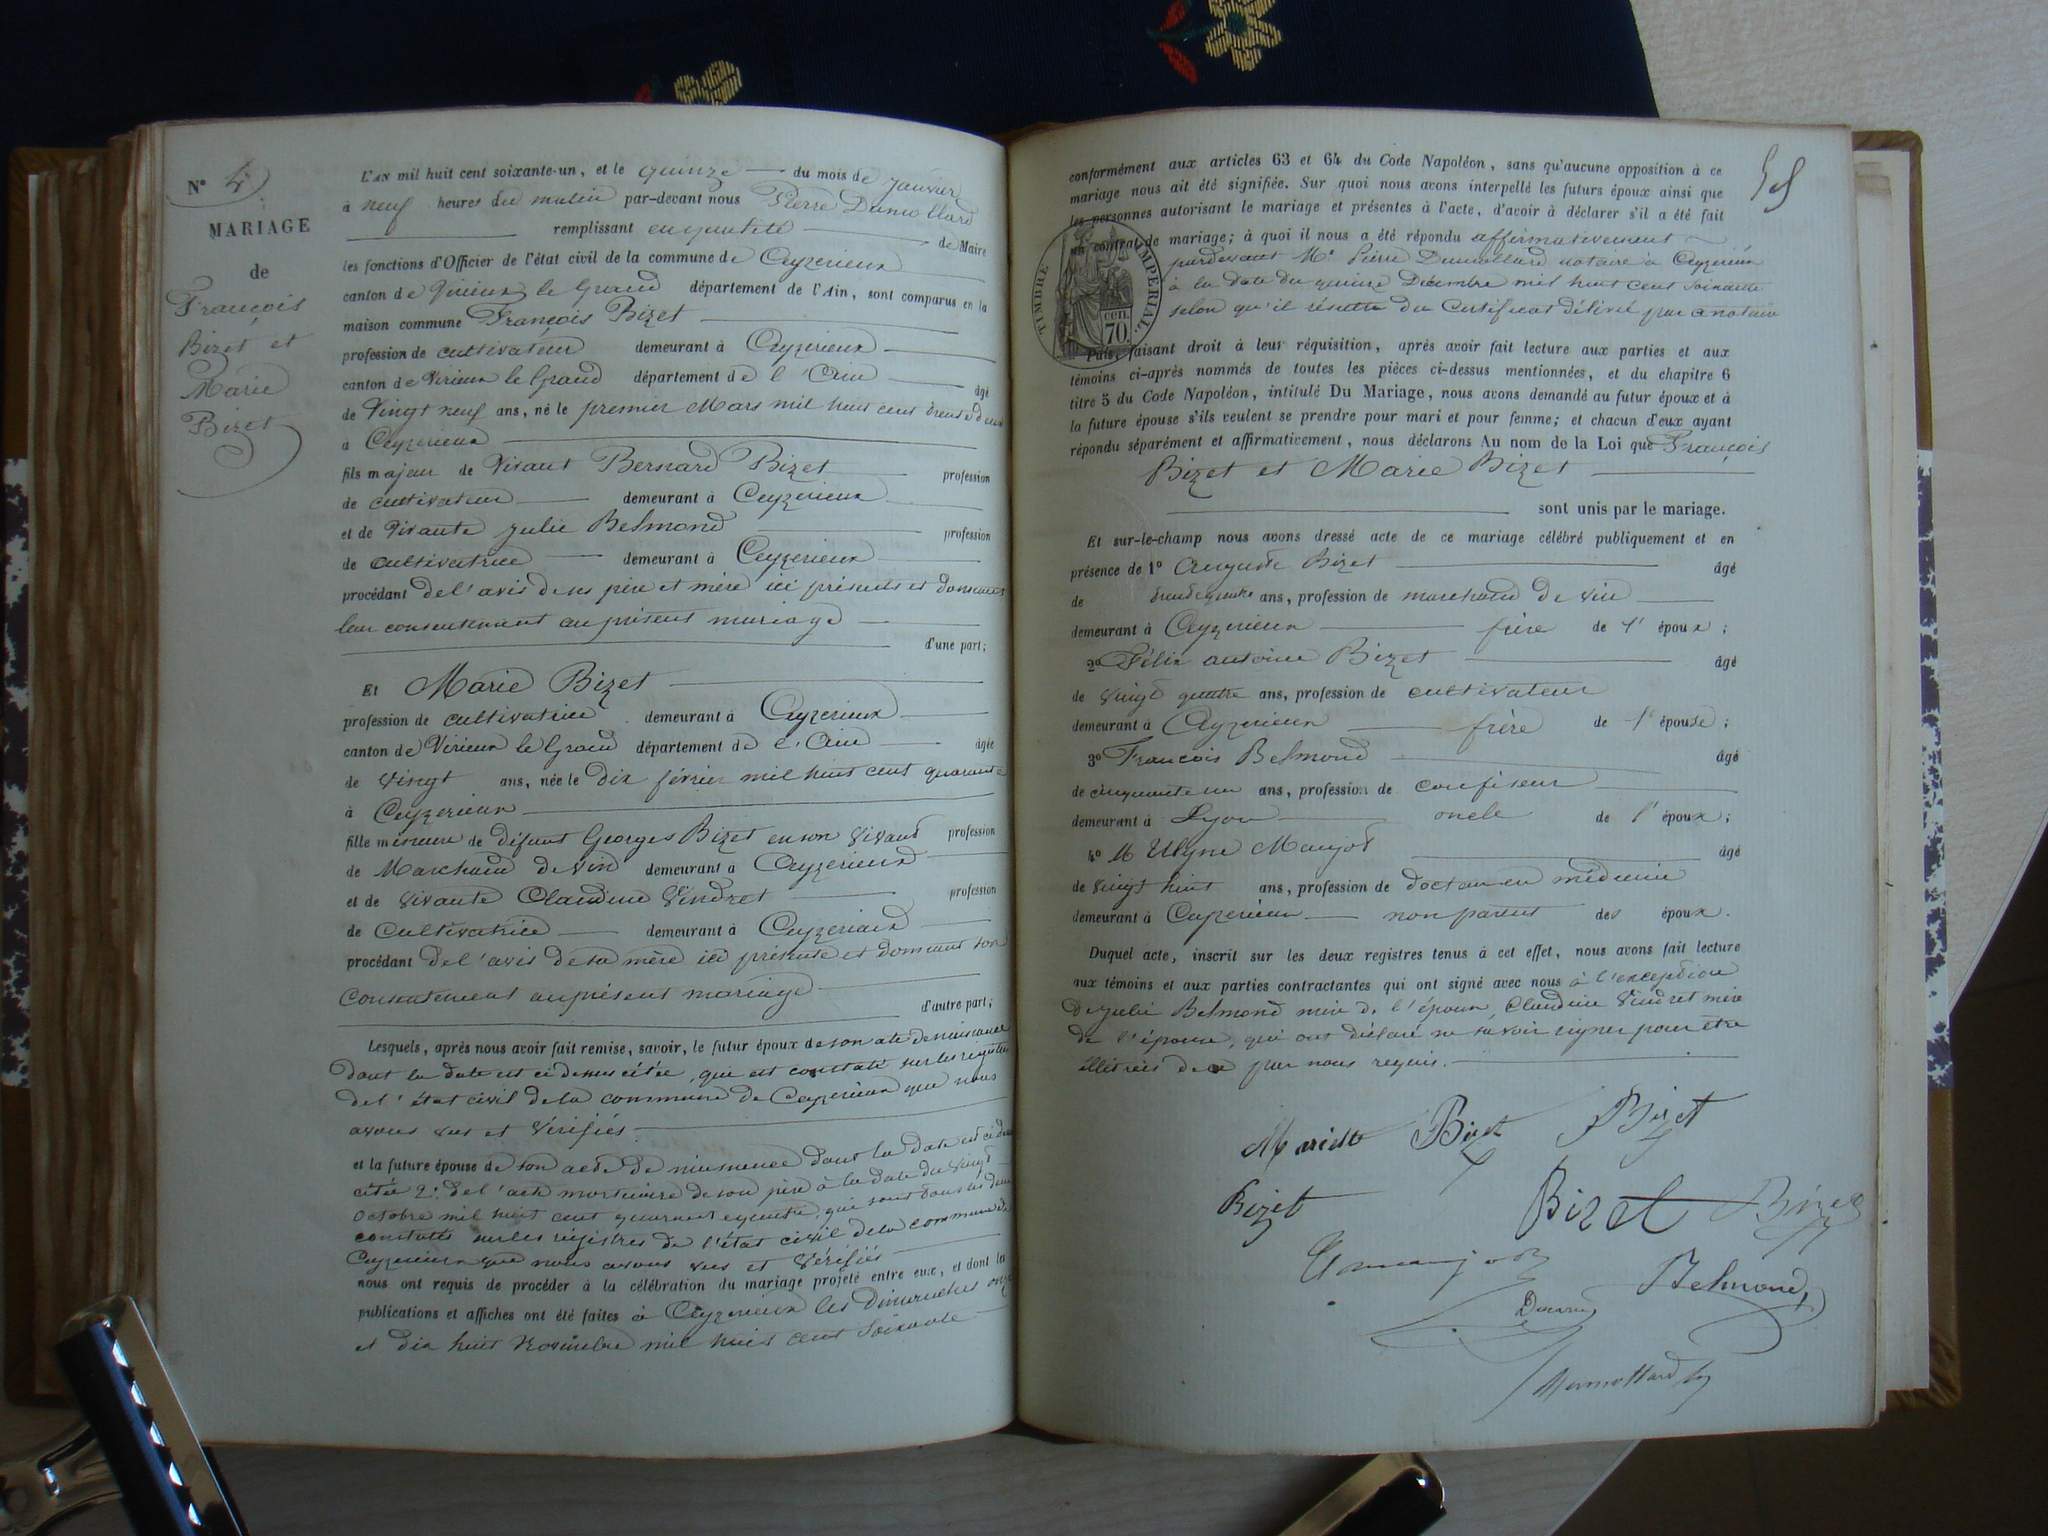 N° 4
MARIAGE
de
François
Bizet et
Marie
Bizet
L'AN mil huit cent soixante-un, et le quinze du mois de janvier
à neuf heures du matin par-devant nous Pierre Dumollard
remplissant en qualité de Maire
les fonctions d'Officier de l'état civil de la commune de Ceyzerieux
canton de Virieux le Grand département de l'Ain, sont comparus en la
maison commune François Bizet
profession de cultivateur demeurant à Ceyzerieux
canton de Virieux le Grand département de l'Ain âgé
de Vingt neuf ans, né le premier Mars mil huit cent trente deux
à Ceyzerieux
fils majeur de Vivant Bernard Bizet profession
de cultivateur demeurant à Ceyzerieux
et de Vivante Julie Belmond profession
de cultivatrice demeurant à Ceyzerieux
procédant de l'avis de ses père et mère ici présents et donnant
leur consentement au présent mariage
d'une part;
Et Marie Bizet
profession de cultivatrice demeurant à Ceyzerieux
canton de Virieux le Grand département de l'Ain âgée
de Vingt ans, née le dix février mil huit cent quarante
à Ceyzerieux
fille mineure de défunt Georges Bizet en son vivant profession
de Marchand de vin demeurant à Ceyzerieux
et de vivante Claudine Vindret profession
de Cultivatrice demeurant à Ceyzeriaux
procédant de l'avis de sa mère ici présente et donnant son
Consentement au présent mariage
d'autre part;
Lesquels, après nous avoir fait remise, savoir, le futur époux de son acte de naissance
dont la date est ci dessus citée, qui est constaté sur les registres
de l'état civil de la commune de Ceyzerieux que nous
avons vus et Vérifiés
et la future épouse de son acte de naissance dont la date est ci dessus
citée 2° de l'acte mortuaire de son père à la date du vingt
octobre mil huit cent quarante quatre, qui sont tous les deux
constatés sur les registres de l'état civil de la commune de
Ceyzerieux que nous avons vus et Vérifiés
nous ont requis de procéder à la célébration du mariage projeté entre eux, et dont les
publications et affiches ont été faites à Ceyzerieux les dimanches onze
et dix huit Novembre mil huit cent soixante
conformément aux articles 63 et 64 du Code Napoléon, sans qu'aucune opposition à ce
mariage nous ait été signifiée. Sur quoi nous avons interpellé les futurs époux ainsi que
les personnes autorisant le mariage et présentes à l'acte, d'avoir à déclarer s'il a été fait
un contrat de mariage; à quoi il nous a été répondu affirmativement
pardevant Me Pierre Dumollard notaire à Ceyzerieu
à la date du quinze Décembre mil huit cent soixante
selon qu'il résulte du Certificat délivré par ce notaire
TIMBRE IMPERIAL.
70. cen.
Puis, faisant droit à leur réquisition, après avoir fait lecture aux parties et aux
témoins ci-après nommés de toutes les pièces ci-dessus mentionnées, et du chapitre 6
titre 5 du Code Napoléon, intitulé Du Mariage, nous avons demandé au futur époux et à
la future épouse s'ils veulent se prendre pour mari et pour femme; et chacun d'eux ayant
répondu séparément et affirmativement, nous déclarons Au nom de la Loi que François
Bizet et Marie Bizet
sont unis par le mariage.
Et sur-le-champ nous avons dressé acte de ce mariage célébré publiquement et en
présence de 1° Auguste Bizet âgé
de trente quatre ans, profession de marchand de vin
demeurant à Ceyzerieux frère de l'époux;
2° Félix antoine Bizet âgé
de vingt quatre ans, profession de cultivateur
demeurant à Ceyzerieux frère de l'épouse;
3° François Belmond âgé
de cinquante un ans, profession de confiseur
demeurant à Lyon oncle de l'époux;
4° M Ulysse Maujot âgé
de vingt huit ans, profession de docteur en médecine
demeurant à Ceyzerieux non parent des époux.
Duquel acte, inscrit sur les deux registres tenus à cet effet, nous avons fait lecture
aux témoins et aux parties contractantes qui ont signé avec nous à l'exception
de Julie Belmond mère de l'époux, Claudine Vindret mère
de l'épouse, qui ont déclaré ne savoir signer pour être
illitrées de ce par nous requis.
Mariette Bizet Bizet
Bizet Bizet Bizet
Belmond